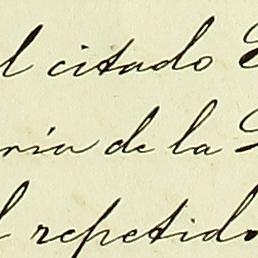 l citado
ria de la
l repetido